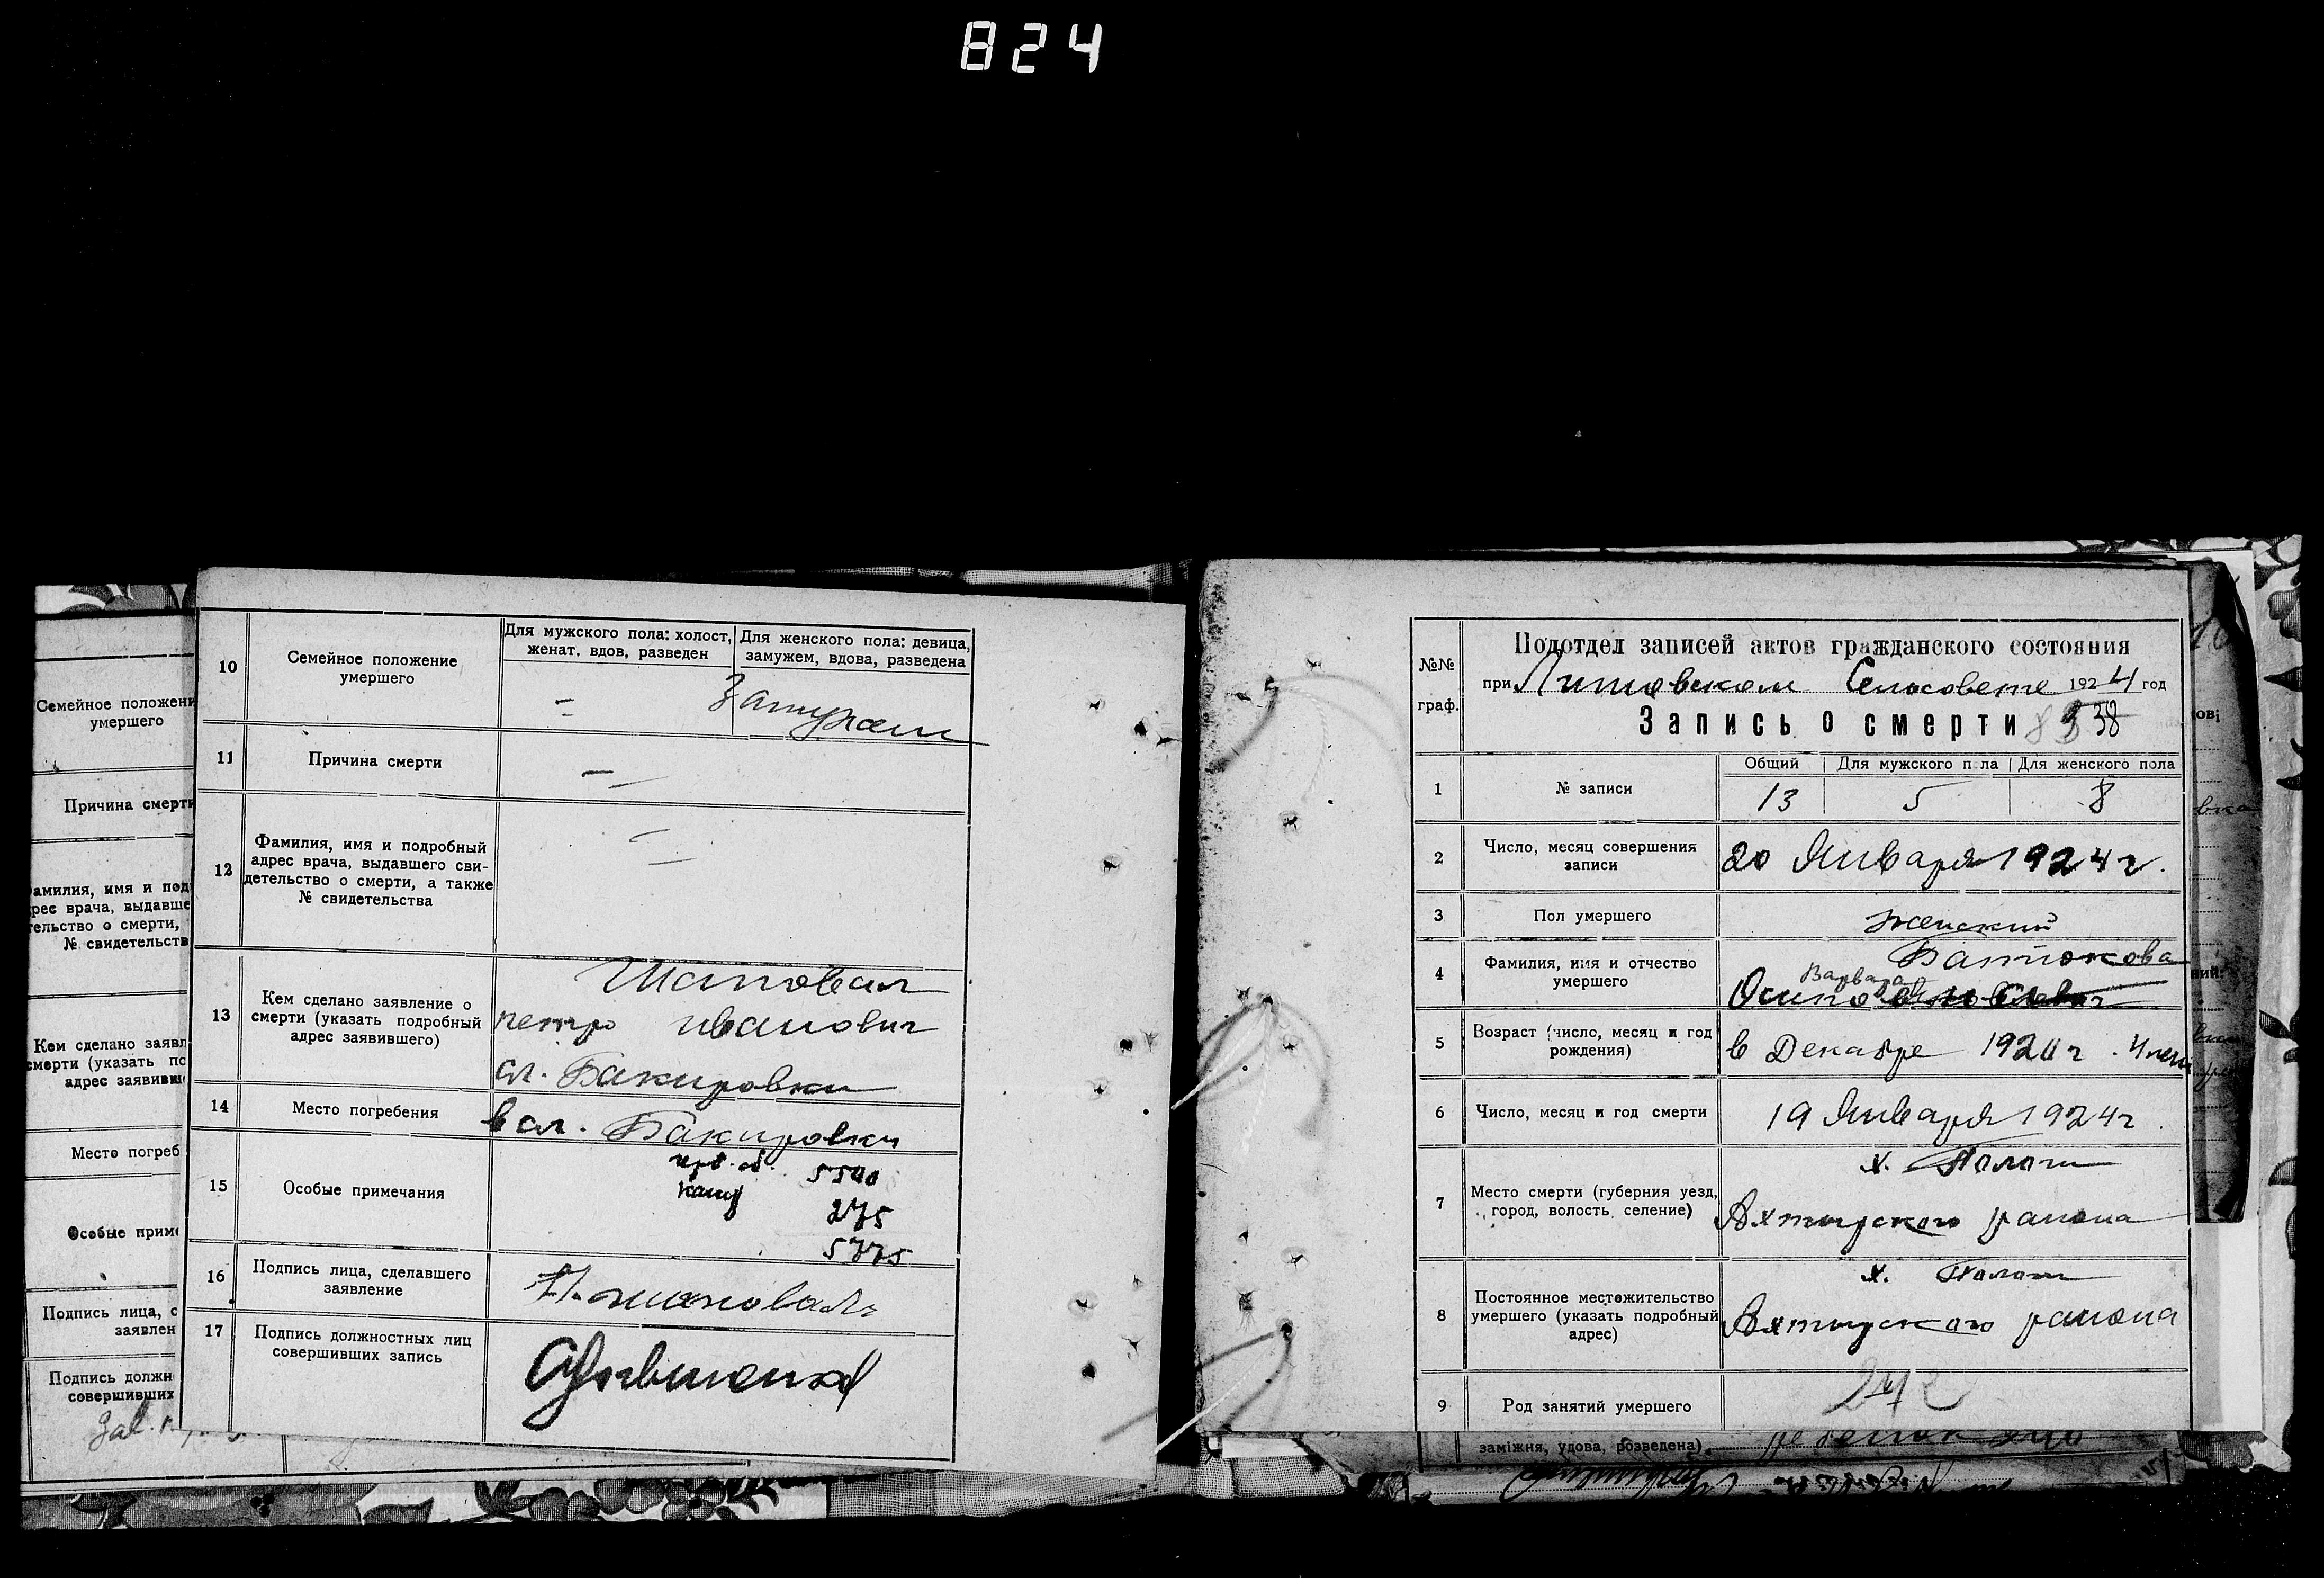 824
Семейное положени
умершего
Причина смерти
амилия, имя и под
рес врача, выдавше
тельство о смерти,
№ свидетельств
Кем сделано заявл
смерти (указать по
адрес заявивш
Место погреб
Особые приме
Подпись лица, с
заявлен
Подпись должн
совершивших
10 Семейное положение умершего
Для мужского пола: холост, женат, вдов, разведен
Для женского пола: девица, замужем, вдова, разведена
11 Причина смерти
12 Фамилия, имя и подробный
адрес врача, выдавшего сви-
детельство о смерти, а также
№ свидетельства
13 Кем сделано заявление о
смерти (указать подробный
адрес заявившего)
Шаповал
петро иванович
сл. Бакировки
14 Место погребения
в сл. Бакировки
15 Особые примечания
5540
275
5775
16 Подпись лица, сделавшего
заявление
17 Подпись должностных лиц
совершивших запись
№№
граф.
Подотдел записей актов гражданского состояния
при Литовском Сельсовете 1924 год
Запись о смерти 38
1 № записи
Общий Для мужского пола Для женского пола
13 5 8
2 Число, месяц совершения
записи
20 Января 1924 г.
3 Пол умершего
женский
4 Фамилия, имя и отчество
умершего
Батюкова
Варвара
5 Возраст (число, месяц и год
рождения)
в Декабре 1920 г. 4 лет
6 Число, месяц и год смерти
19 Января 1924 г.
7 Место смерти (губерния уезд,
город, волость, селение)
х.
Ахтырского района
8 Постоянное местожительство
умершего (указать подробный
адрес)
х.
Ахтырского района
9 Род занятий умершего
заміжня, удова, розведена)